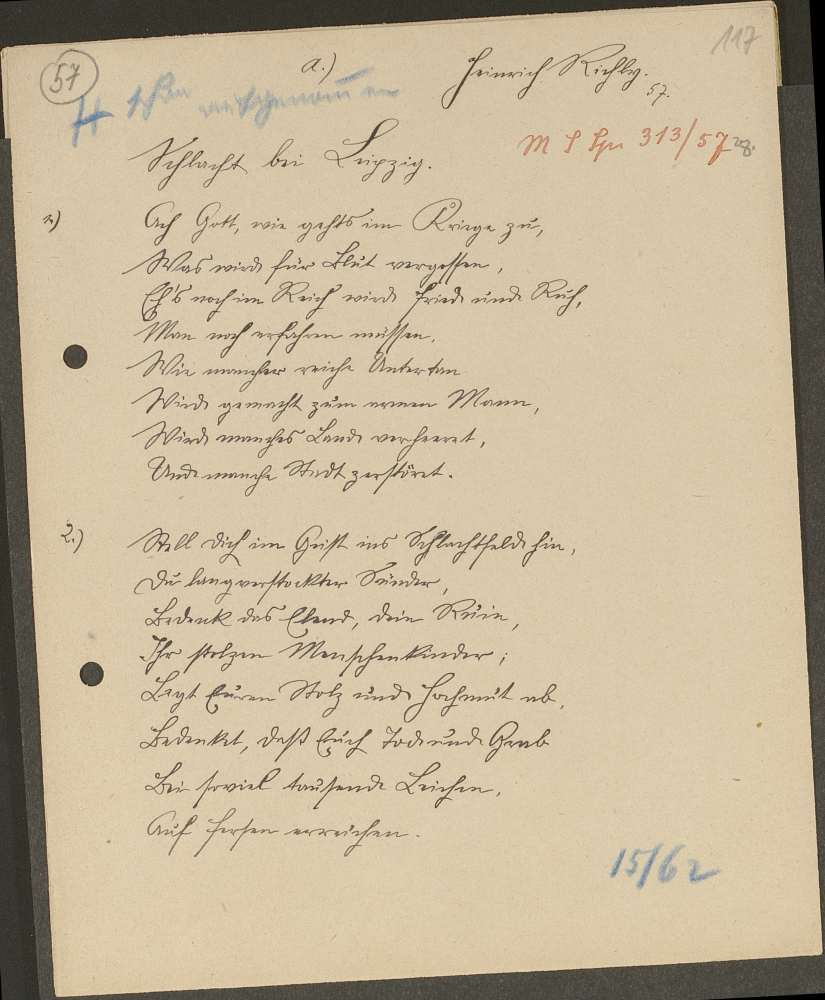 57
117
a.)
Heinrich Richly.
57.
M S Spr 313/57
Schlacht bei Leipzig.
1.)
Ach Gott, wie gehts im Kriege zu,
Was wird für Blut vergossen,
Eh's noch im Reich wird Fried und Ruh,
Man noch erfahren müssen.
Wie mancher reiche Untertan
Wird gemacht zum armen Mann,
Wird manches Land verheeret,
Und manche Stadt zerstöret.
2.)
Stell dich im Geist ins Schlachtfeld hin,
Du lang verstockter Sünder,
Bedenk das Elend, dein Ruin,
Ihr stolzen Menschenkinder;
Legt Euren Stolz und Hochmut ab,
Bedenket, daß Euch Tod und Grab
Bei soviel tausend Leichen,
Auf Fersen erreichen.
15/62